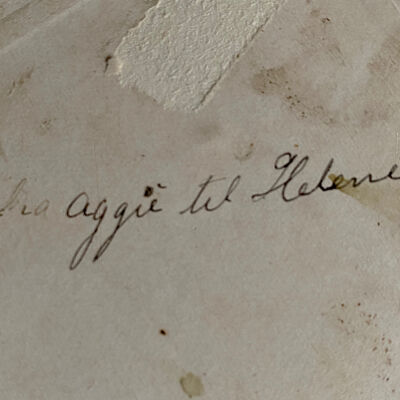 fra Aggie til Helene